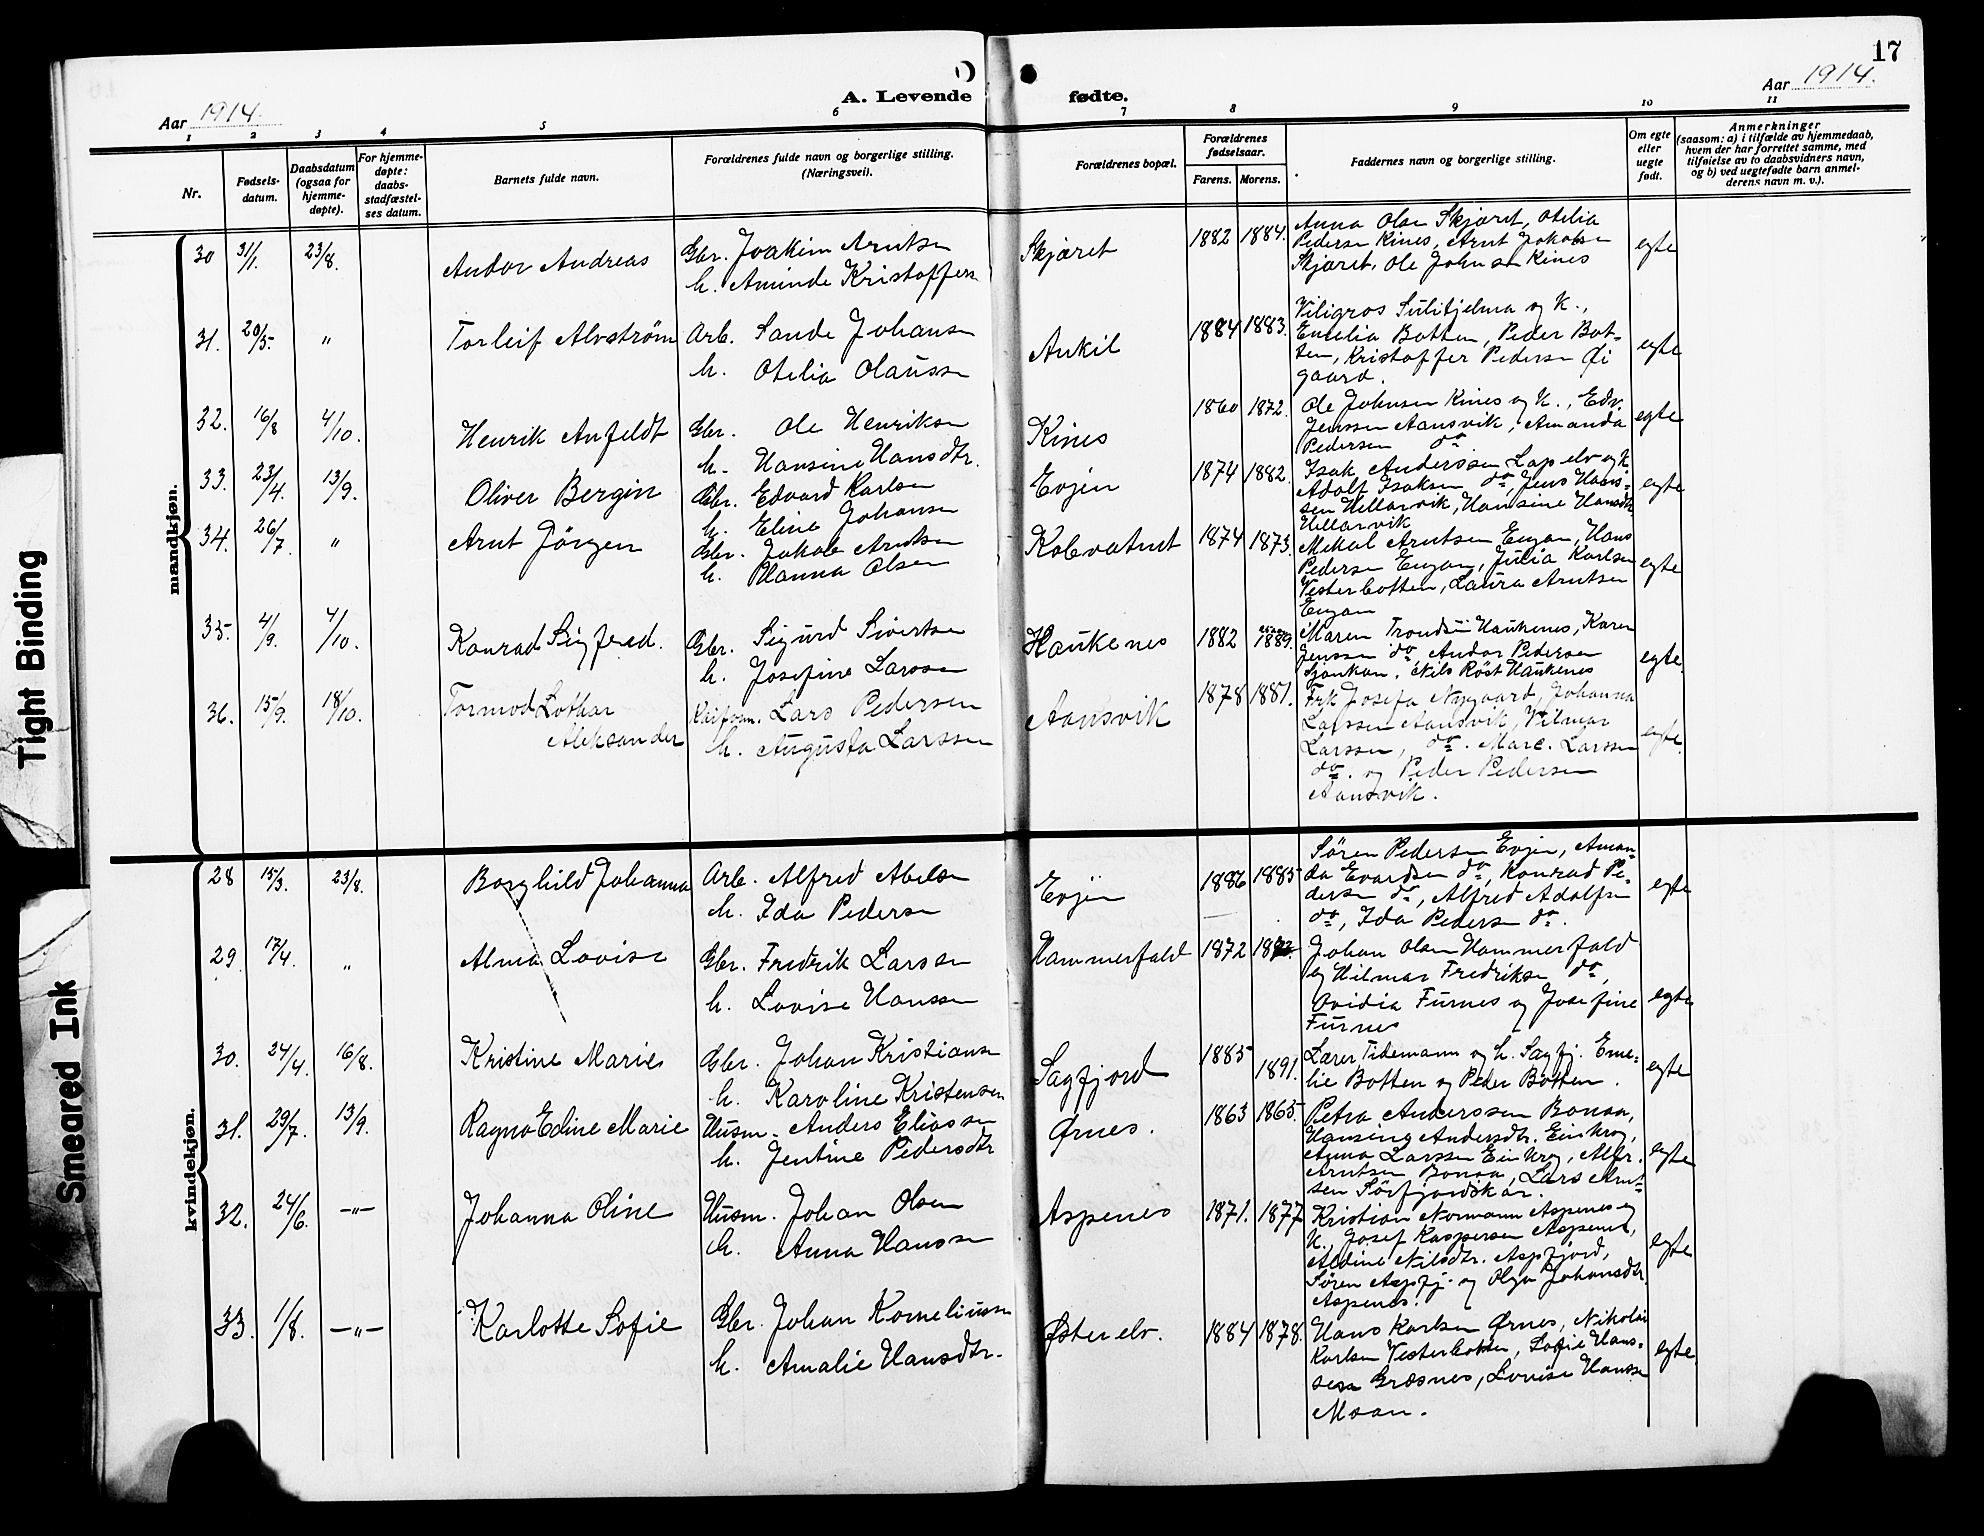 17
Aar 1914.
A. Levende fødte.
Aar 1914.
1 2 3 4 5 6 7 8 9 10 11
Nr.
Fødsels-
datum.
Daabsdatum
(ogsaa for
hjemme-
døpte).
For hjemme-
døpte:
daabs-
stadfæstel-
ses datum.
Barnets fulde navn.
Forældrenes fulde navn og borgerlige stilling.
(Næringsvei).
Forældrenes bopæl.
Forældrenes
fødselsaar.
Farens. Morens.
Faddernes navn og borgerlige stilling.
Om egte
eller
uegte
født.
Anmerkninger
(saasom: a) i tilfælde av hjemmedaab,
hvem der har forrettet samme, med
tilføielse av to daabsvidners navn,
og b) ved uegtefødte barn anmel-
derens navn m. v.).
mandkjøn.
30 31/1. 23/8. Andor Andreas
Gbr. Joakim Arntsen
h. Aminde Kristoffersn
Skjæret 1882 1884.
Anna Olsen Skjæret, Otelia
Pedersen Kines, Arnt Jakobsen
Skjæret, Ole Johnsen Kines
egte
31. 20/5. " Torleif Alvstrøm
Arb. Sande Johansn
h. Otelia Olaussn
Ankil 1884 1883.
Viligros Sulitjelma og h.,
Emelia Botten, Peder Bot-
ten, Kristoffer Pedersen Øi
gaard.
egte
32. 16/8 4/10. Henrik Anfeldt
Gbr. Ole Henriksn
h. Hansine Hansdtr.
Kines 1860 1872.
Ole Johnsen Kines og h., Edv.
Jenssen Aansvik, Amanda
Pedersen do
egte
33. 23/4. 13/9. Oliver Bergin
Gbr. Edvard Karlsen
h. Eline Johansn
Evjen 1874 1882.
Isak Anderssen Lapelv og h.
Adolf Isaksen do, Jens Hans-
sen Hellarvik, Hansine Hansdtr
Hellarvik
egte
34. 26/7. " Arnt Jörgen
Gbr. Jakob Arntsen
h. Hanna Olsen
Kobvatnet 1874 1873.
Mikal Arntsen Engan, Hans
Pedersen Engan, Julia Karlsen
Vesterbotten, Laura Arntsen
Engan
egte
35. 4/9. 4/10. Konrad Sigfred.
Gbr. Sigurd Sivertsn
h. Josefine Larssn
Haukenes 1882 1889.
Maren Trondsn Haukenes, Karen
Jenssen do Andor Pedersen
Sjønkan, Nils Röst Haukenes
egte.
36. 15/9. 18/10. Tormod Lothar
Aleksander
Lars Pedersen
h. Augusta Larssen
Aansvik 1878 1881.
Frk Josefa Nygaard, Johanna
Larssen Aansvik, Vilmar
Larssen, do. Marc. Larssen
do. og Peder Pedersen
Aansvik.
egte.
kvindekjøn.
28 15/3. 23/8. Borghild Johanna
Arb. Alfred Abelsn
h. Ida Pedersn
Evjen 1886 1885
Sören Pedersen Evjen, Aman-
da Evardsen do, Konrad Pe-
dersen do, Alfred Adolfsn
do, Ida Pedersn do.
egte
29. 17/4. " Alma Lovise
Gbr. Fredrik Larssn
h. Lovise Hanssn
Hammerfald 1872
Johan Olsen Hammerfald
og Hilmar Fredriksn do,
Ovidia Furnes og Josefine
Furnes
egte
30. 24/4. 16/8. Kristine Marie
Gbr. Johan Kristiansn
h. Karoline Kristensen
Sagfjord 1885 1891.
Lærer Tidemann og h. Sagfj. Eme-
lie Botten og Peder Botten.
egte
31. 29/7. 13/9. Ragna Edine Marie
Husm. Anders Eliassn
h. Jentine Pedersdtr
Ørnes. 1863 1865.
Petra Anderssen Bonaa,
Hansine Andersdtr. Einkrog,
Anna Larssen Einkrog, Alfr.
Arntsen Bonaa, Lars Arnt-
sen Sörfjordskar.
egte
32. 24/6. -"- Johanna Oline
Husm. Johan Olsen
h. Anna Hanssn
Aspenes 1871. 1877
Kristian Normann Aspenes og
h. Josef Kaspersen Aspenes,
Aldine Nilsdtr. Aspfjord,
Sören Aspfj. og Olga Johansdtr
Aspenes.
egte
33. 1/8. -"- Karlotte Sofie
Gbr. Johan Korneliussn
h. Amalie Hansdtr.
Østerelv. 1884 1878.
Hans Karlsen Ørnes, Nikolai
Karlsen Vesterbotten, Sofie Hans-
sen Græsnes, Lovise Hanssn
Moan.
egte.
Tight Binding
Smeared Ink